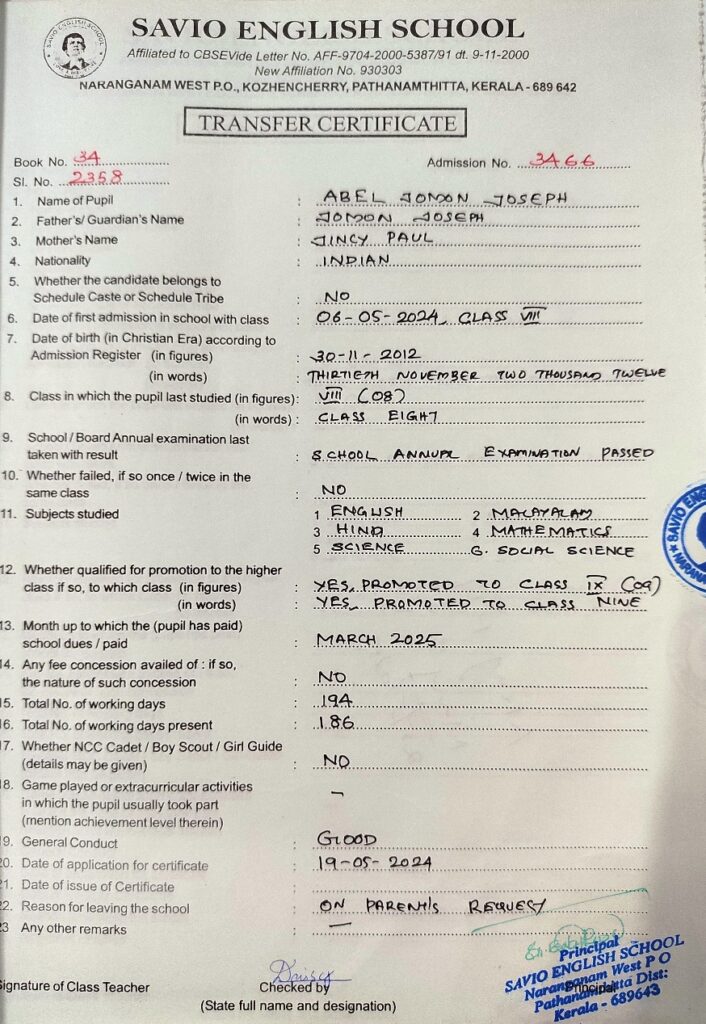 SAVIO ENGLISH SCHOOL
Affiliated to CBSEVide Letter No. AFF-9704-2000-5387/91 dt. 9-11-2000
New Affiliation No. 930303
NARANGANAM WEST P.O., KOZHENCHERRY, PATHANAMTHITTA, KERALA - 689 642
TRANSFER CERTIFICATE
Book No. 34
Admission No. 3466
Sl. No. 2358
1. Name of Pupil : ABEL JOMON JOSEPH
2. Father's/ Guardian's Name : JOMON JOSEPH
3. Mother's Name : JINCY PAUL
4. Nationality : INDIAN
5. Whether the candidate belongs to
Schedule Caste or Schedule Tribe : NO
6. Date of first admission in school with class : 06-05-2024, CLASS VIII
7. Date of birth (in Christian Era) according to
Admission Register (in figures) : 30-11-2012
(in words) : THIRTIETH NOVEMBER TWO THOUSAND TWELVE
8. Class in which the pupil last studied (in figures): VIII (08)
(in words) : CLASS EIGHT
9. School / Board Annual examination last
taken with result : SCHOOL ANNUAL EXAMINATION PASSED
10. Whether failed, if so once / twice in the
same class : NO
11. Subjects studied : 1 ENGLISH 2 MALAYALAM
3 HINDI 4 MATHEMATICS
5 SCIENCE 6. SOCIAL SCIENCE
12. Whether qualified for promotion to the higher
class if so, to which class (in figures) : YES, PROMOTED TO CLASS IX (09)
(in words) : YES, PROMOTED TO CLASS NINE
13. Month up to which the (pupil has paid)
school dues / paid : MARCH 2025
14. Any fee concession availed of : if so,
the nature of such concession : NO
5. Total No. of working days : 194
6. Total No. of working days present : 186
7. Whether NCC Cadet / Boy Scout / Girl Guide
(details may be given) : NO
8. Game played or extracurricular activities
in which the pupil usually took part : -
(mention achievement level therein)
9. General Conduct : GOOD
20. Date of application for certificate : 19-05-2024
21. Date of issue of Certificate :
22. Reason for leaving the school : ON PARENT'S REQUEST
23 Any other remarks : —
Principal
SAVIO ENGLISH SCHOOL
Naranganam West P O
Pathanamthitta Dist:
Kerala - 689643
Signature of Class Teacher
Checked by
Principal
(State full name and designation)